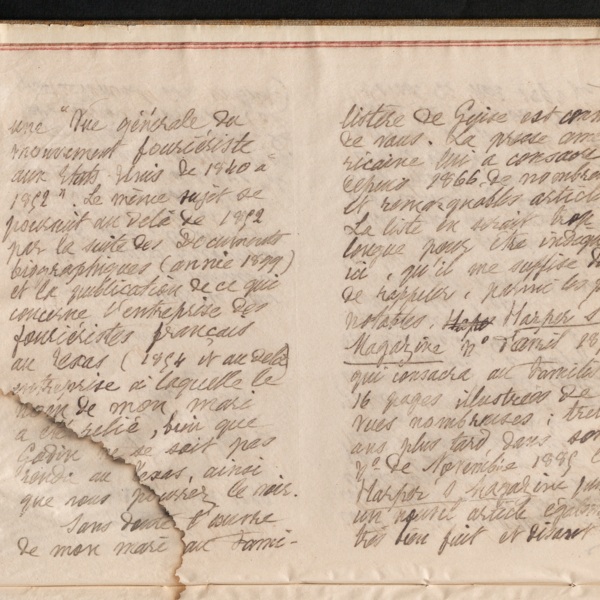 une "Vue générale du
mouvement fouriériste
aux Etats-Unis de 1840 à
1852". Le même sujet se
poursuit au delà de 1852
par la suite des Documents
biographiques (année 1899)
et la publication de ce qui
concerne l'entreprise des
fouriéristes français
au Texas (1854 et au delà)
entreprise à laquelle le
nom de mon mari
a été relié, bien que
Godin ne se soit pas
rendu au Texas, ainsi
que vous pourrez le voir.
Sans doute l'œuvre
de mon mari au Fami-
listère de Guise est conn
de vous. La presse amé
ricaine lui a consacré
depuis 1866, de nombre
et remarquables article
La liste en serait trop
longue pour être indiqu
ici, qu'il me suffise d
de rappeler, parmi les p
notables, Harper's
Magazine No d'avril 18
qui consacra au Famili
16 pages illustrées de
vues nombreuses ; trei
ans plus tard, dans son
No de Novembre 1885 l
Harper's Magazine
un nouvel article égal
très bien fait et disant